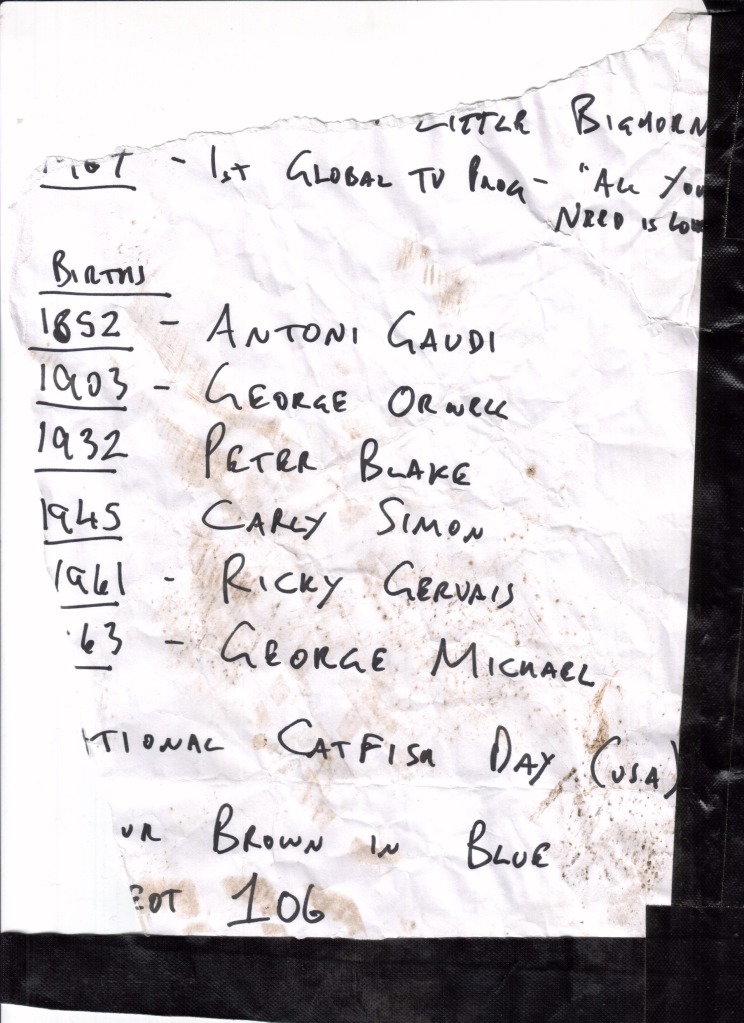 LITTLE BIGHORN
- 1st GLOBAL TV PROG - "ALL YOU
NEED IS LOVE
BIRTHS
1852 - ANTONI GAUDI
1903 - GEORGE ORWELL
1932 PETER BLAKE
1945 CARLY SIMON
1961 - RICKY GERVAIS
63 - GEORGE MICHAEL
TIONAL CATFISH DAY (USA)
UR BROWN IN BLUE
EOT 106